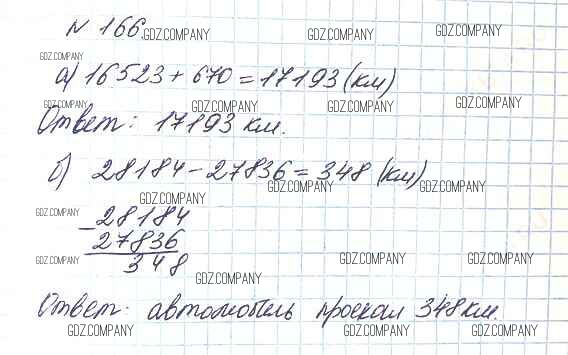 N 166.
GDZ.COMPANY GDZ.COMPANY GDZ.COMPANY
GDZ.COMPANY
а) 16523 + 670 = 17193 (км)
GDZ.COMPANY GDZ.COMPANY GDZ.COMPANY GDZ.COMPANY
Ответ: 17193 км.
б) 28184 - 27836 = 348 (км)
GDZ.COMPANY GDZ.COMPANY GDZ.COMPANY
GDZ.COMPANY
- 28184
27836
348
GDZ.COMPANY GDZ.COMPANY GDZ.COMPANY
GDZ.COMPANY
Ответ: автомобиль проехал 348 км.
GDZ.COMPANY GDZ.COMPANY GDZ.COMPANY